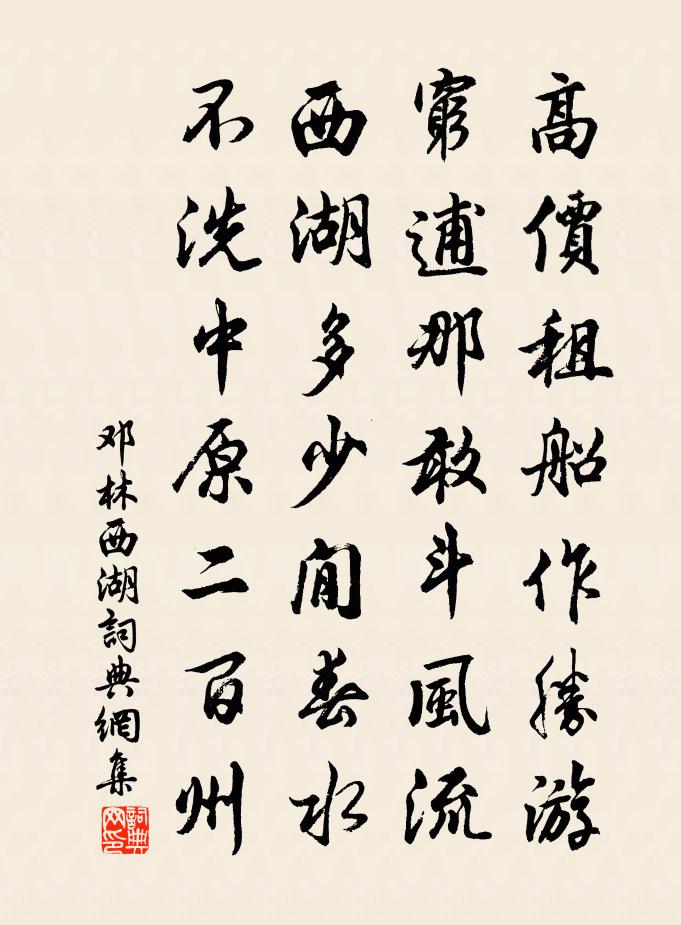 高價租船作勝游
窮逋那敢斗風流
西湖多少閒春水
不洗中原二百州
邓林西湖詞典網集
詞典网印